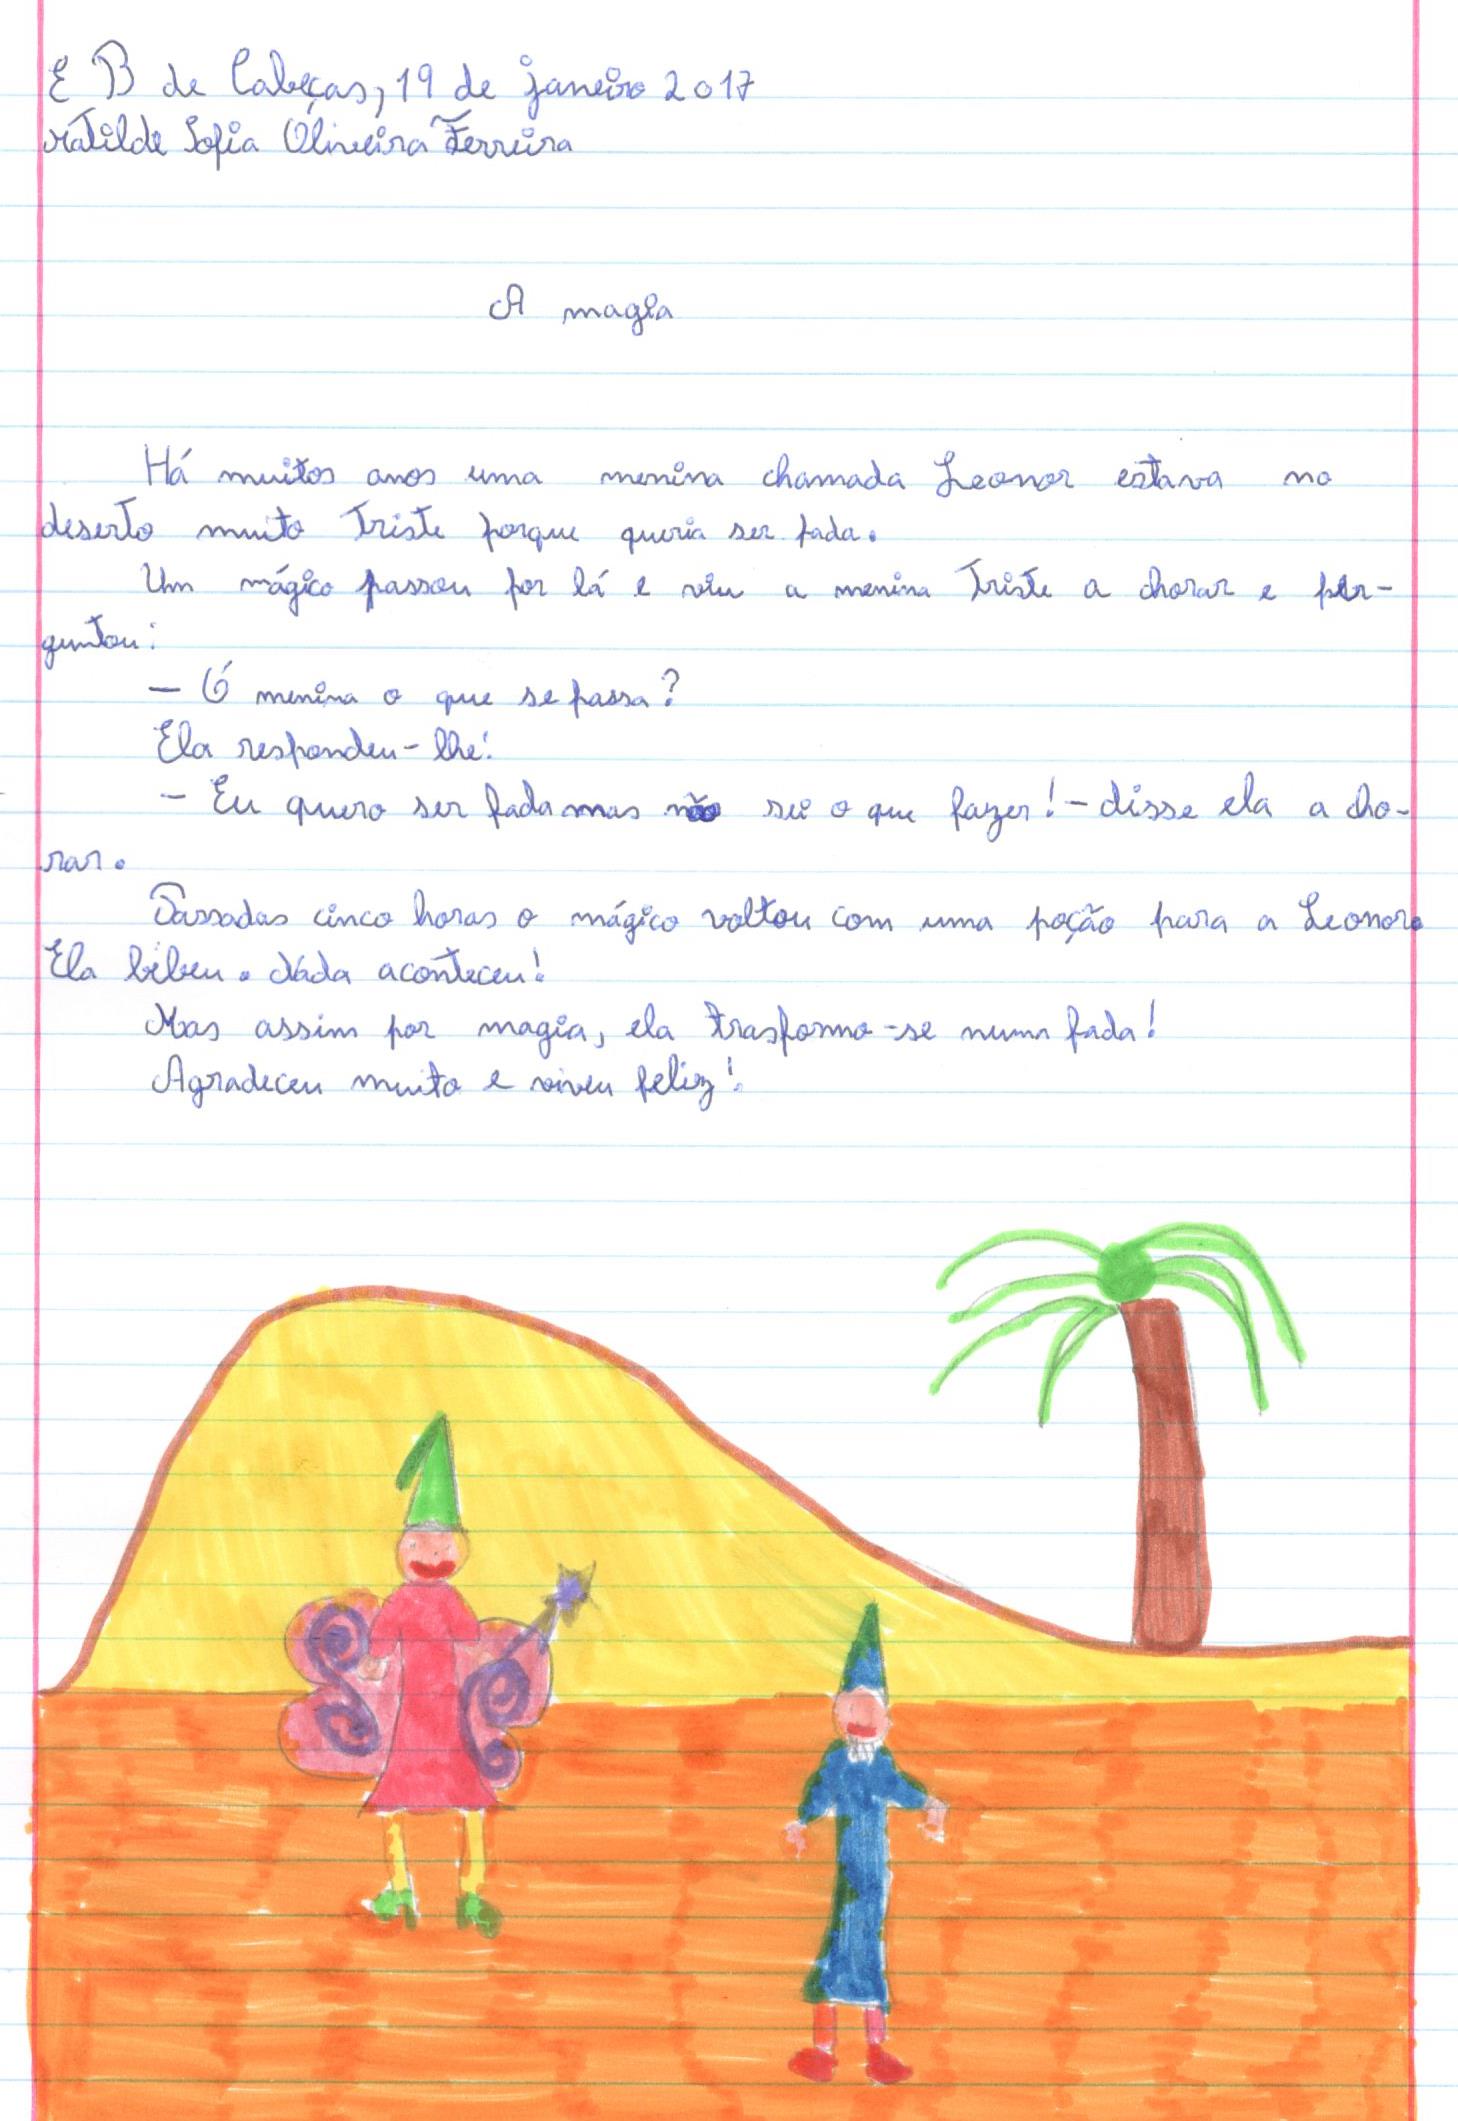 E B de Cabeças, 19 de janeiro 2017
Matilde Sofia Oliveira Ferreira
A magia
Há muitos anos uma menina chamada Leonor estava no
deserto muito triste porque queria ser fada.
Um mágico passou por lá e viu a menina triste a chorar e per-
guntou:
— Ó menina o que se passa?
Ela respondeu-lhe:
- Eu quero ser fada mas não sei o que fazer! - disse ela a cho-
rar.
Passadas cinco horas o mágico voltou com uma poção para a Leonor.
Ela bebeu. Nada aconteceu!
Mas assim por magia, ela trasformo-se numa fada!
Agradeceu muito e viveu feliz!